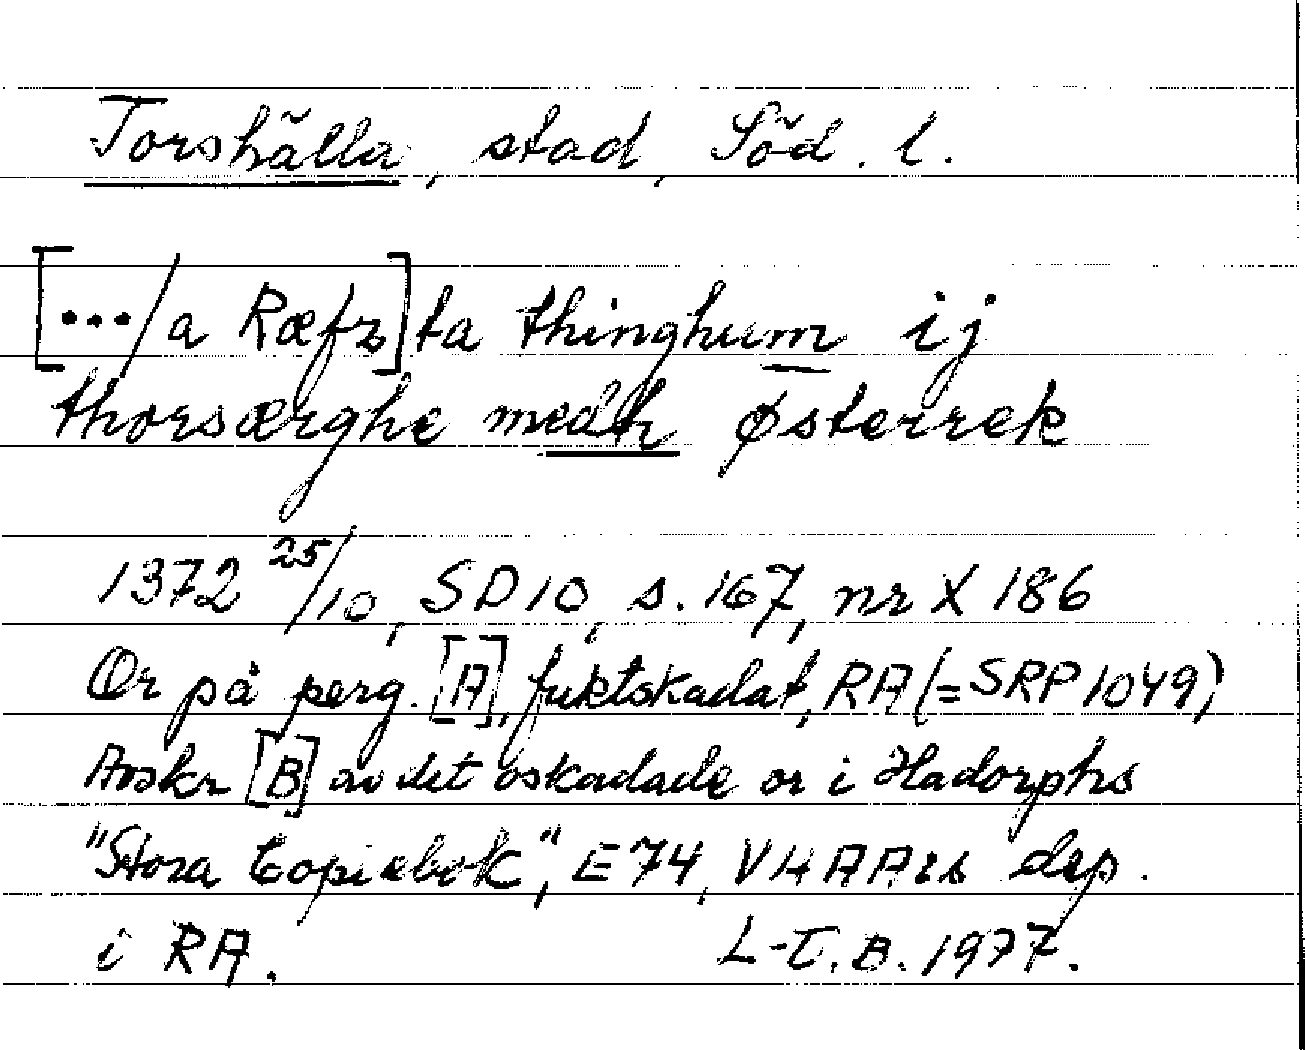 Torshälla, stad, Söd. l.
[.../a Ræfz]ta thinghum ij
thorsærghe medh østerrek
1372 25/10, SD 10, s. 167, nr X 186
Or på perg. [A], fuktskadat, RA (=SRP 1049)
Avskr [B] av det oskadade or i Hadorphs
"Stora Copiebok", E 74, VHAA:s dep.
i RA. L-E.B. 1977.